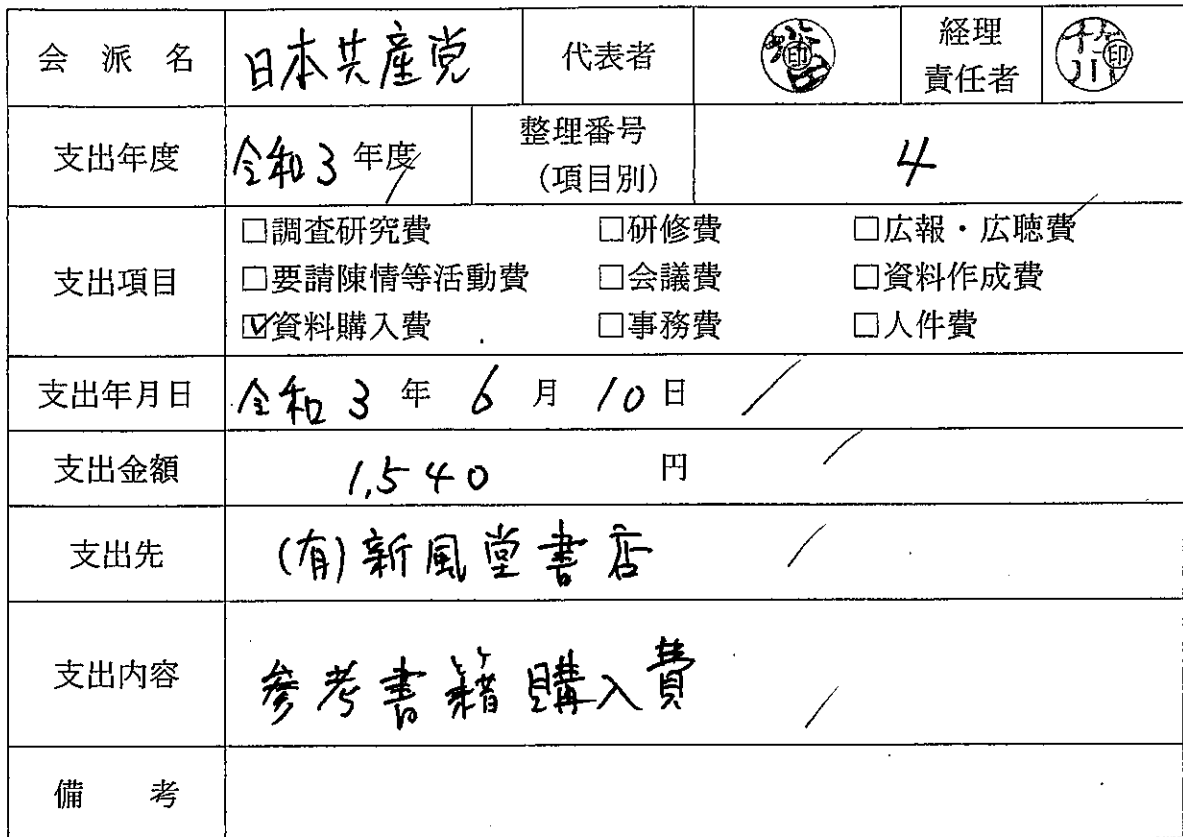 会派名 日本共産党 代表者 印 経理責任者 印
支出年度 令和3年度 整理番号(項目別) 4
支出項目
□調査研究費 □研修費 □広報・広聴費
□要請陳情等活動費 □会議費 □資料作成費
☑資料購入費 □事務費 □人件費
支出年月日 令和3年6月10日
支出金額 1,540 円
支出先 (有)新風堂書店
支出内容 参考書籍購入費
備考